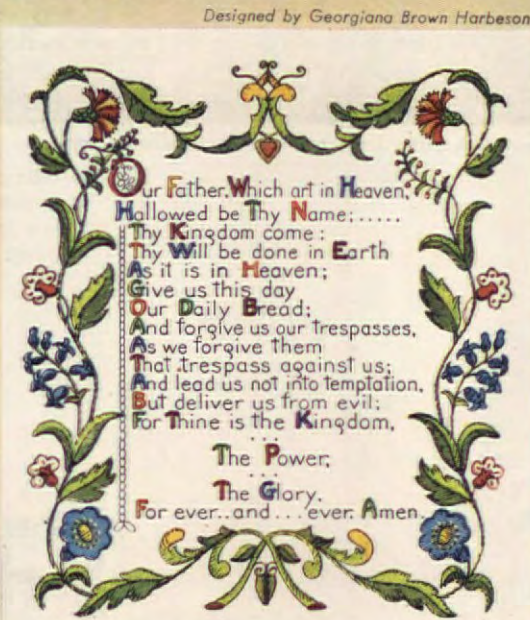 Designed by Georgiana Brown Harbeson
Our Father, Which art in Heaven,
Hallowed be Thy Name;.....
Thy Kingdom come:
Thy Will be done in Earth
As it is in Heaven;
Give us this day
Our Daily Bread;
And forgive us our trespasses,
As we forgive them
That trespass against us;
And lead us not into temptation,
But deliver us from evil;
For Thine is the Kingdom,
...
The Power,
...
The Glory.
For ever..and...ever. Amen.